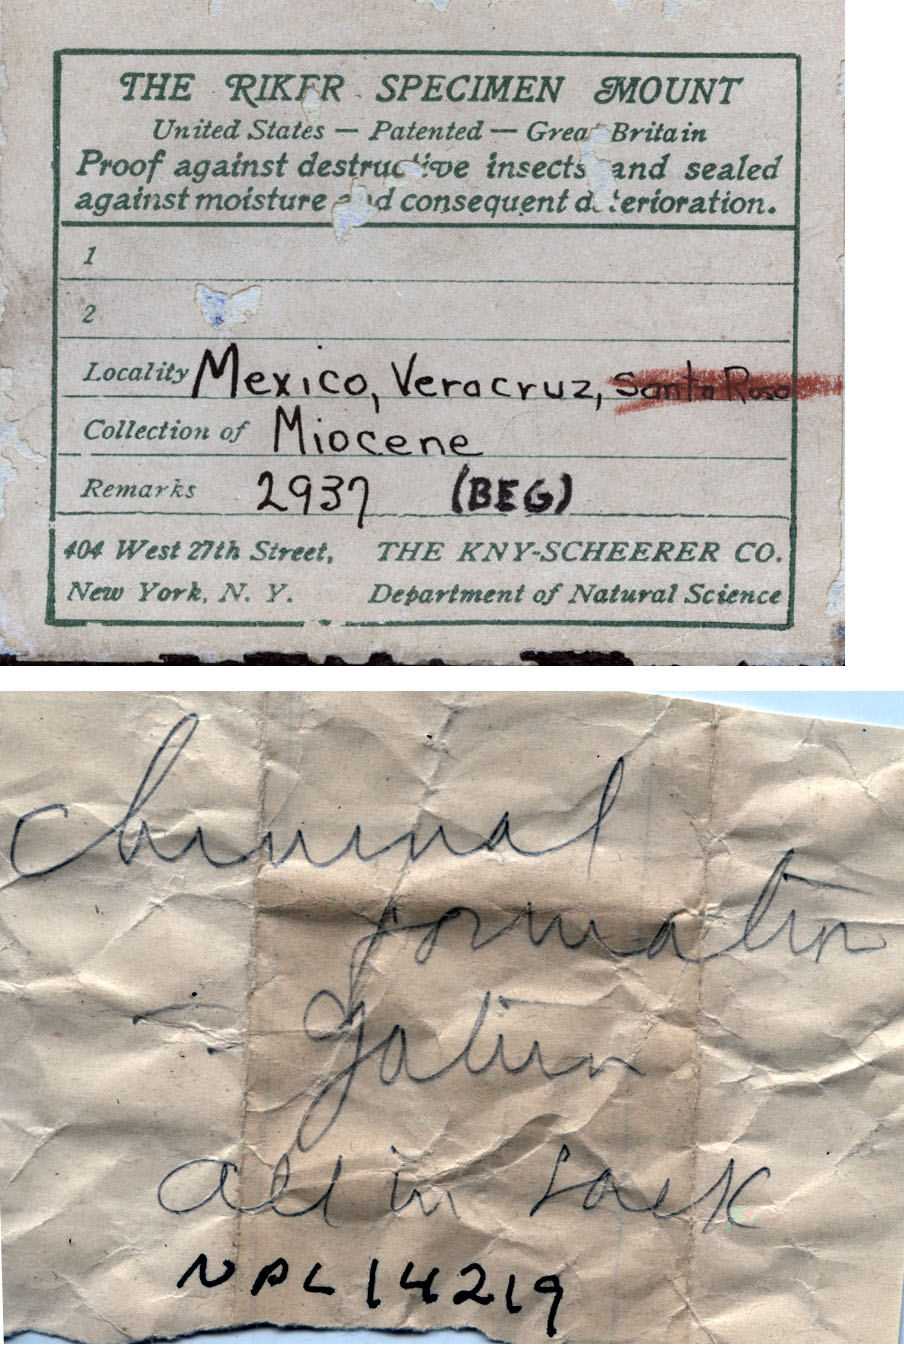 THE RIKER SPECIMEN MOUNT
United States — Patented — Great Britain
Proof against destructive insects and sealed
against moisture and consequent deterioration.
1
2
Locality Mexico, Veracruz, Santa Rosa
Collection of Miocene
Remarks 2937 (BEG)
404 West 27th Street, THE KNY-SCHEERER CO.
New York, N. Y. Department of Natural Science
formation
- Gatun
all in sack
NPL 14219